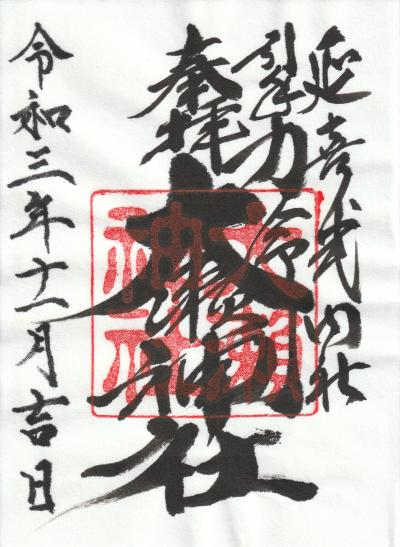 延喜式内社
引手力命
奉拝
大瀬神社
令和三年十一月吉日
大瀬
神社